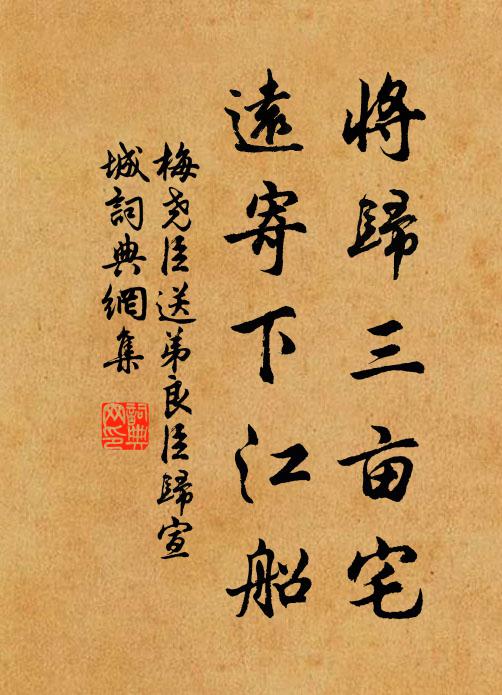 將歸三亩宅
遠寄下江船
梅尭臣送弟良臣歸宣
城詞典網集
詞典
网印